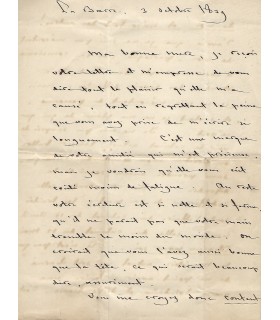 La Barre, 2 octobre 1859
Ma bonne mère, je reçois
votre lettre et m'empresse de vous
dire tout le plaisir qu'elle m'a
causé, tout en regrettant la peine
que vous avez prise de m'écrire si
longuement. C'est une marque
de votre amitié qui m'est précieuse,
mais je voudrais qu'elle vous eût
coûté moins de fatigue. Au reste
votre écriture est si nette et si ferme,
qu'il ne parait pas que votre main
tremble le moins du monde. On
croirait que vous l'avez aussi bonne
que la tête, ce qui serait beaucoup
dire, assurément.
Vous me croyez donc content